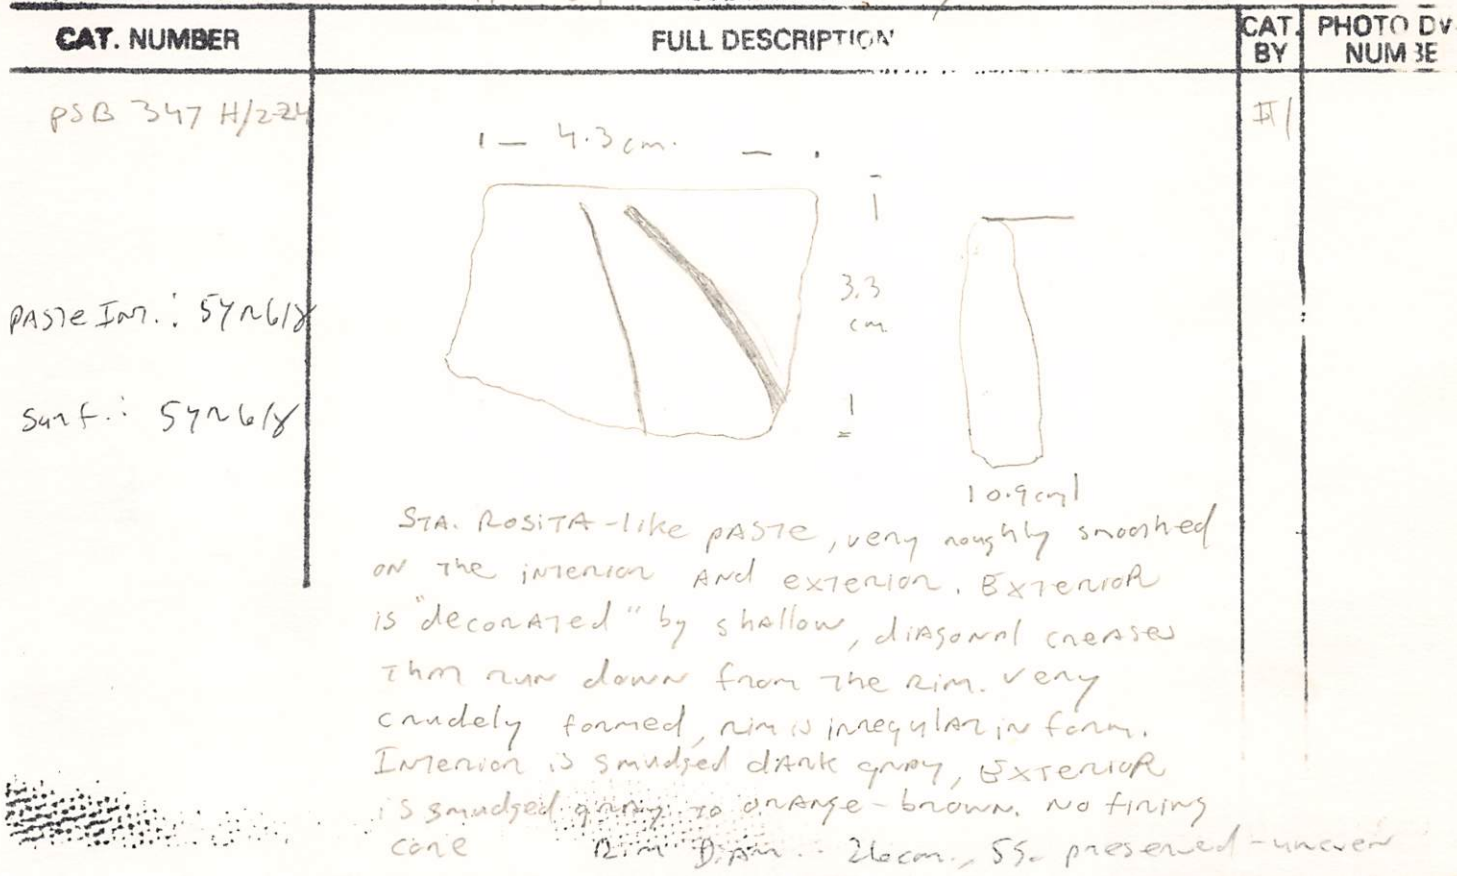 CAT. NUMBER FULL DESCRIPTION CAT. BY PHOTO NUM
PSB 347 H/2-24
4.3 cm.
3.3
cm
Paste Int.: 5YR6/8
Surf.: 5YR6/8
0.9cm
STA. ROSITA-like paste, very roughly smoothed
on the interior and exterior. Exterior
is "decorated" by shallow, diagonal creases
that run down from the rim. Very
crudely formed, rim is irregular in form.
Interior is smudged dark gray, Exterior
is smudged gray to orange-brown. No firing
core Rim Diam.: 26cm., preserved-uneven